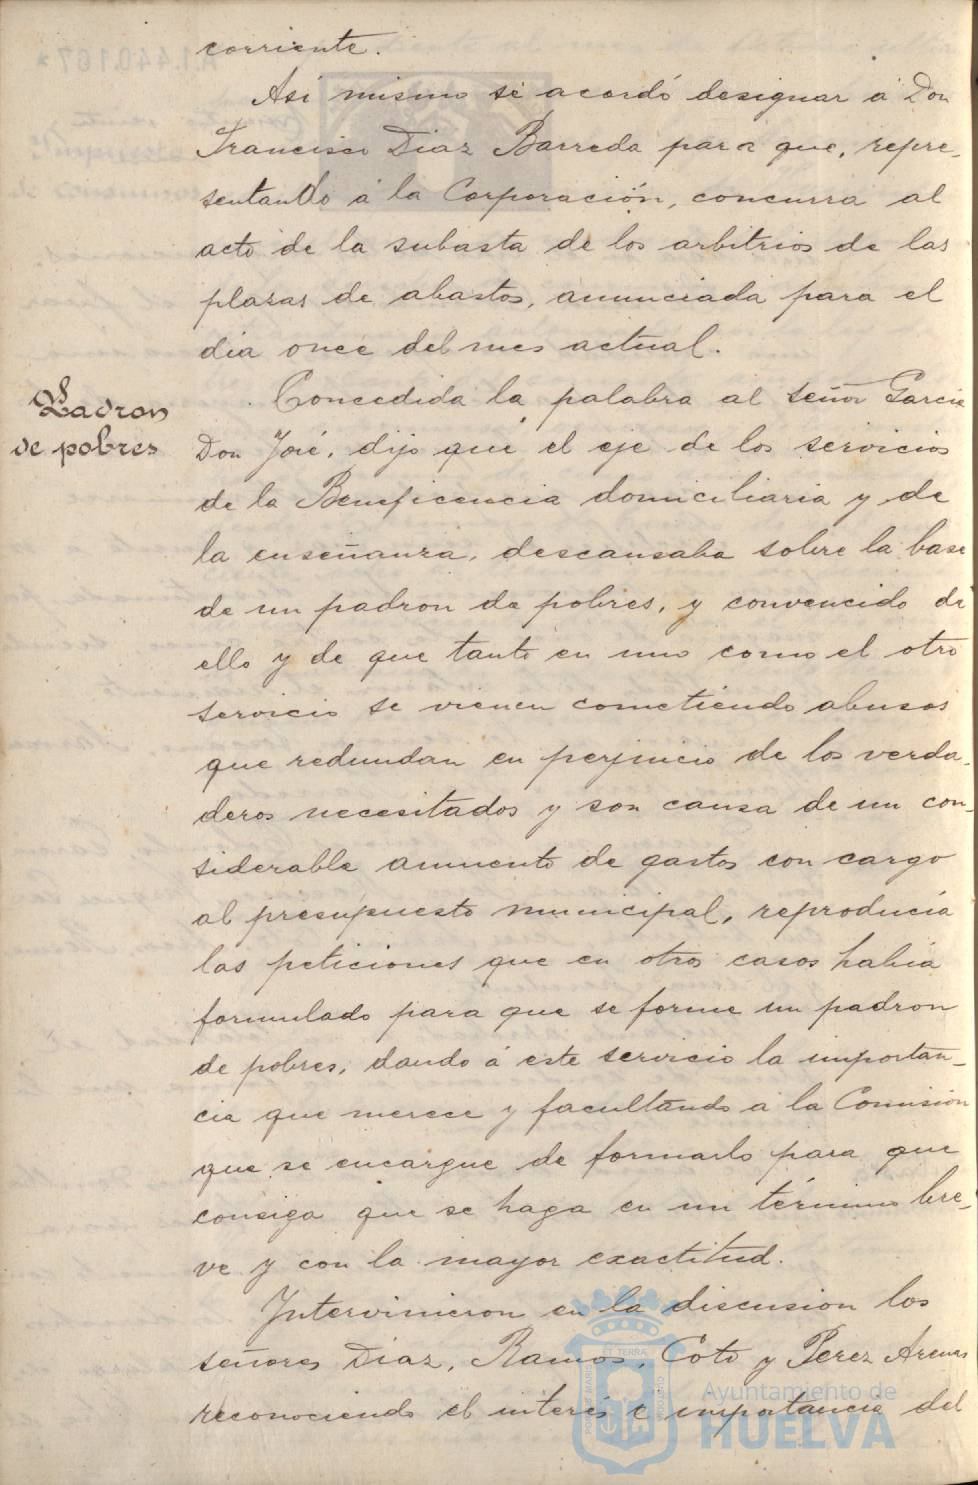 corriente.
Asi mismo se acordó designar á Don
Francisco Diaz Barreda para que, repre-
sentando á la Corporación, concurra al
acto de la subasta de los arbitrios de las
plazas de abastos, anunciada para el
dia once del mes actual.
Padron
de pobres
Concedida la palabra al señor Garcia
Don José, dijo que el eje de los servicios
de la Beneficencia domiciliaria y de
la enseñanza, descansaba sobre la base
de un padron de pobres, y convencido de
ello y de que tanto en uno como el otro
servicio se vienen cometiendo abusos
que redundan en perjuicio de los verda-
deros necesitados y son causa de un con-
siderable aumento de gastos con cargo
al presupuesto municipal, reproducía
las peticiones que en otros casos había
formulado para que se forme un padron
de pobres, dando á este servicio la importan-
cia que merece y facultando a la Comisión
que se encargue de formarlo para que
consiga que se haga en un término bre-
ve y con la mayor exactitud.
Intervinieron en la discusion los
señores Diaz, Ramos, Coto y Perez Arenas
reconociendo el interés é importancia del
Ayuntamiento de
HUELVA